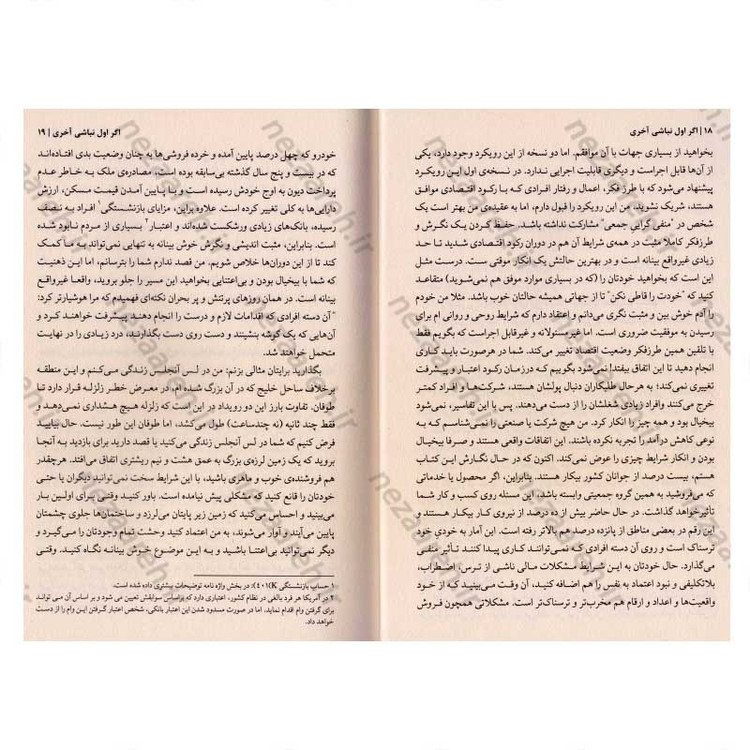 ۱۸ | اگر اول نباشی آخری
بخواهید از بسیاری جهات با آن موافقم. اما دو نسخه از این رویکرد وجود دارد، یکی
از آن‌ها قابل اجراست و دیگری قابلیت اجرایی ندارد. در نسخه‌ی اول این رویکرد
پیشنهاد می‌شود که با طرز فکر، اعمال و رفتار افرادی کـه بـا رکـود اقتصـادی موافـق
هستند، شریک نشوید. من این رویکرد را قبول دارم، اما به عقیده‌ی من بهتر است یک
شخص در "منفی گرایی جمعی" مشارکت نداشته باشد. حفـظ کـردن یـک نگـرش و
طرزفکر کاملا مثبت در همه‌ی شرایط آن هم در دوران رکود اقتصادی شدید تـا حـد
زیادی غیرواقع بینانه است و در بهترین حالتش یک انکار موقتی سـت. درسـت مثـل
این است که بخواهید خودتان را (که در بسیاری موارد موفق هم نمی‌شوید) متقاعـد
کنید که "خودت را قاطی نکن" تا از جهاتی همیشه حالتان خوب باشد. مثلا من خودم
را آدم خوش بین و مثبت نگری می‌دانم و اعتقاد دارم که شرایط روحی و روانی ام برای
رسیدن به موفقیت ضروری است. اما غیرمسئولانه و غیرقابل اجراست که بگویم فقط
با تلقین همین طرزفکر وضعیت اقتصاد تغییر می‌کند. شما در هرصورت باید کـاری
انجام دهید تا این اتفاق بیفتد! نمی‌شود بگوییم کـه درزمـان رکـود اعتبـار و پیشـرفت
تغییری نمی‌کند؛ به هرحال طلبکاران دنبال پولشان هستند، شرکت‌هـا و افـراد کمتـر
خرج می‌کنند وافراد زیادی شغلشان را از دست می‌دهند. پس با این تفاسیر، نمی‌شود
بیخیال بود و همه چیز را انکار کرد. من هیچ شرکت یا صنعتی را نمی‌شناسم کـه بـه
نوعی کاهش درآمد را تجربه نکرده باشند. این اتفاقات واقعی هستند و صـرفا بیخیـال
بودن و انکار شرایط چیزی را عوض نمی‌کند. اکنون که در حال نگارش این کتاب
هستم، بیست درصد از جوانان کشور بیکار هستند. بنابراین، اگر محصول یا خدماتی
که می‌فروشید به همین گروه جمعیتی وابسته باشد، این مسئله روی کسب و کار شما
تأثیرخواهد گذاشت. در حال حاضر بیش از ده درصد از نیروی کار بیکـار هسـتند و
این رقم در بعضی مناطق از پانزده درصد هم بالاتر رفته است. این آمار به خودی خود
ترسناک است و روی آن دسته افرادی کـه نمی‌تواننـد کـاری پیـدا کننـد تـأثیر منفـی
می‌گذارد. حال خودتان به این شرایط مشکلات مالی ناشی از تـرس، اضـطراب،
بلاتکلیفی و نبود اعتماد به نفس را هم اضافه کنید، آن وقت می‌بینیـد کـه از خـود
واقعیت‌ها و اعداد و ارقام هم مخرب‌تر و ترسناک‌تر است. مشکلاتی همچون فروش
اگر اول نباشی آخری | ۱۹
خودرو که چهل درصد پایین آمده و خرده فروشی‌ها به چنان وضعیت بدی افتاده‌اند
که در بیست و پنج سال گذشته بی‌سابقه بوده است، مصادره‌ی ملک به خـاطر عـدم
پرداخت دیون به اوج خودش رسیده است و بـا پـایین آمـدن قیمـت مسـکن، ارزش
دارایی‌ها به کلی تغییر کرده است. علاوه براین، مزایای بازنشسـتگی¹ افـراد بـه نصـف
رسیده، بانک‌های زیادی ورشکست شده‌اند و اعتبـار² بسـیاری از مـردم نـابود شـده
است. بنابراین، مثبت اندیشی و نگرش خوش بینانه به تنهایی نمی‌تواند بـه مـا کمـک
کند تا از این دوران‌ها خلاص شویم. من قصد ندارم شما را بترسانم، اما این ذهنیـت
که شما با بیخیال بودن و بی‌اعتنایی بخواهید این مسیر را جلو بروید، واقعا غیرواقع
بینانه است. در همان روزهای پرتنش و پر بحران نکته‌ای فهمیدم که مرا هوشیارتر کرد:
"آن دسته افرادی که اقدامات لازم و درست را انجام دهنـد پیشـرفت خواهنـد کـرد و
آن‌هایی که یک گوشه بنشینند و دست روی دست بگذارنـد، درد زیـادی را در نهایـت
متحمل خواهند شد.
بگذارید برایتان مثالی بزنم: من در لـس آنجلـس زنـدگی مـی‌کـنم و ایـن منطقـه
برخلاف ساحل خلیج که در آن بزرگ شده ام، در معـرض خطـر زلزلـه قـرار دارد تـا
طوفان. تفاوت بارز این دو رویداد در این است که زلزله هیچ هشداری نمی‌دهـد و
فقط چند ثانیه (نه چندساعت) طول می‌کشد، اما طوفان این طور نیست. حال بیاییـد
فرض کنیم که شما در لس آنجلس زندگی می‌کنید یا قصد دارید برای بازدید به آنجـا
بروید که یک زمین لرزه‌ی بزرگ به عمق هشت و نیم ریشتری اتفاق می‌افتد. هرچقدر
هم فروشنده‌ی خوب و ماهری باشید، با این شرایط سخت نمی‌توانید دیگران یا حتـی
خودتان را قانع کنید که مشکلی پیش نیامده است. باور کنید وقتـی بـرای اولـین بـار
می‌بینید و احساس می‌کنید که زمین زیر پایتان می‌لرزد و ساختمان‌ها جلوی چشمتان
پایین می‌آیند و آوار می‌شوند، به من اعتماد کنید وحشت تمام وجودتان را مـی‌گیـرد و
دیگر نمی‌توانید بی‌اعتنـا باشـید و بـه ایـن موضـوع خـوش بینانـه نگـاه کنیـد. وقتـی
۱ حساب بازنشستگی 401(K): در بخش واژه نامه توضیحات بیشتری داده شده است.
۲ در آمریکا هر فرد بالغی در نظام کشور، اعتباری دارد که براساس سوابقش تعیین می شود و بر اساس آن می تواند
برای گرفتن وام اقدام نماید. اما در صورت مسدود شدن این اعتبار بانکی، شخص اعتبار گرفتن این وام را از دست
خواهد داد.
nezamah.ir